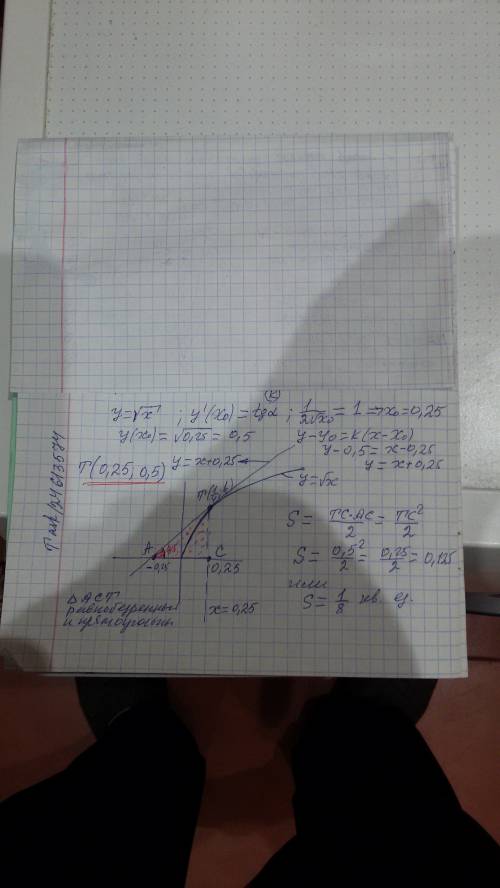 y=√x ; y'(x₀)=tgα (k) ; 1/(2√x₀) = 1 ⇒ x₀=0,25
y(x₀)=√0,25 = 0,5
y-y₀=k(x-x₀)
y-0,5=x-0,25
y=x+0,25
T(0,25; 0,5)
y=x+0,25
y=√x
A
-0,25
C
0,25
x=0,25
S = TC·AC/2 = TC²/2
S = 0,5²/2 = 0,25/2 = 0,125
или
S = 1/8 кв. ед.
△ACT
равнобедренный
и прямоугольный